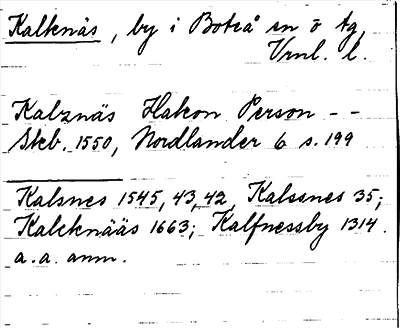 Kalknäs, by i Boteå sn o tg,
Vrnl. l.
Kalznäs Hakon Person - -
Skb. 1550, Nordlander 6 s. 199
Kalsnes 1545, 43, 42, Kalssnes 35;
Kalcknääs 1663; Kalfnessby 1314.
a. a. anm.